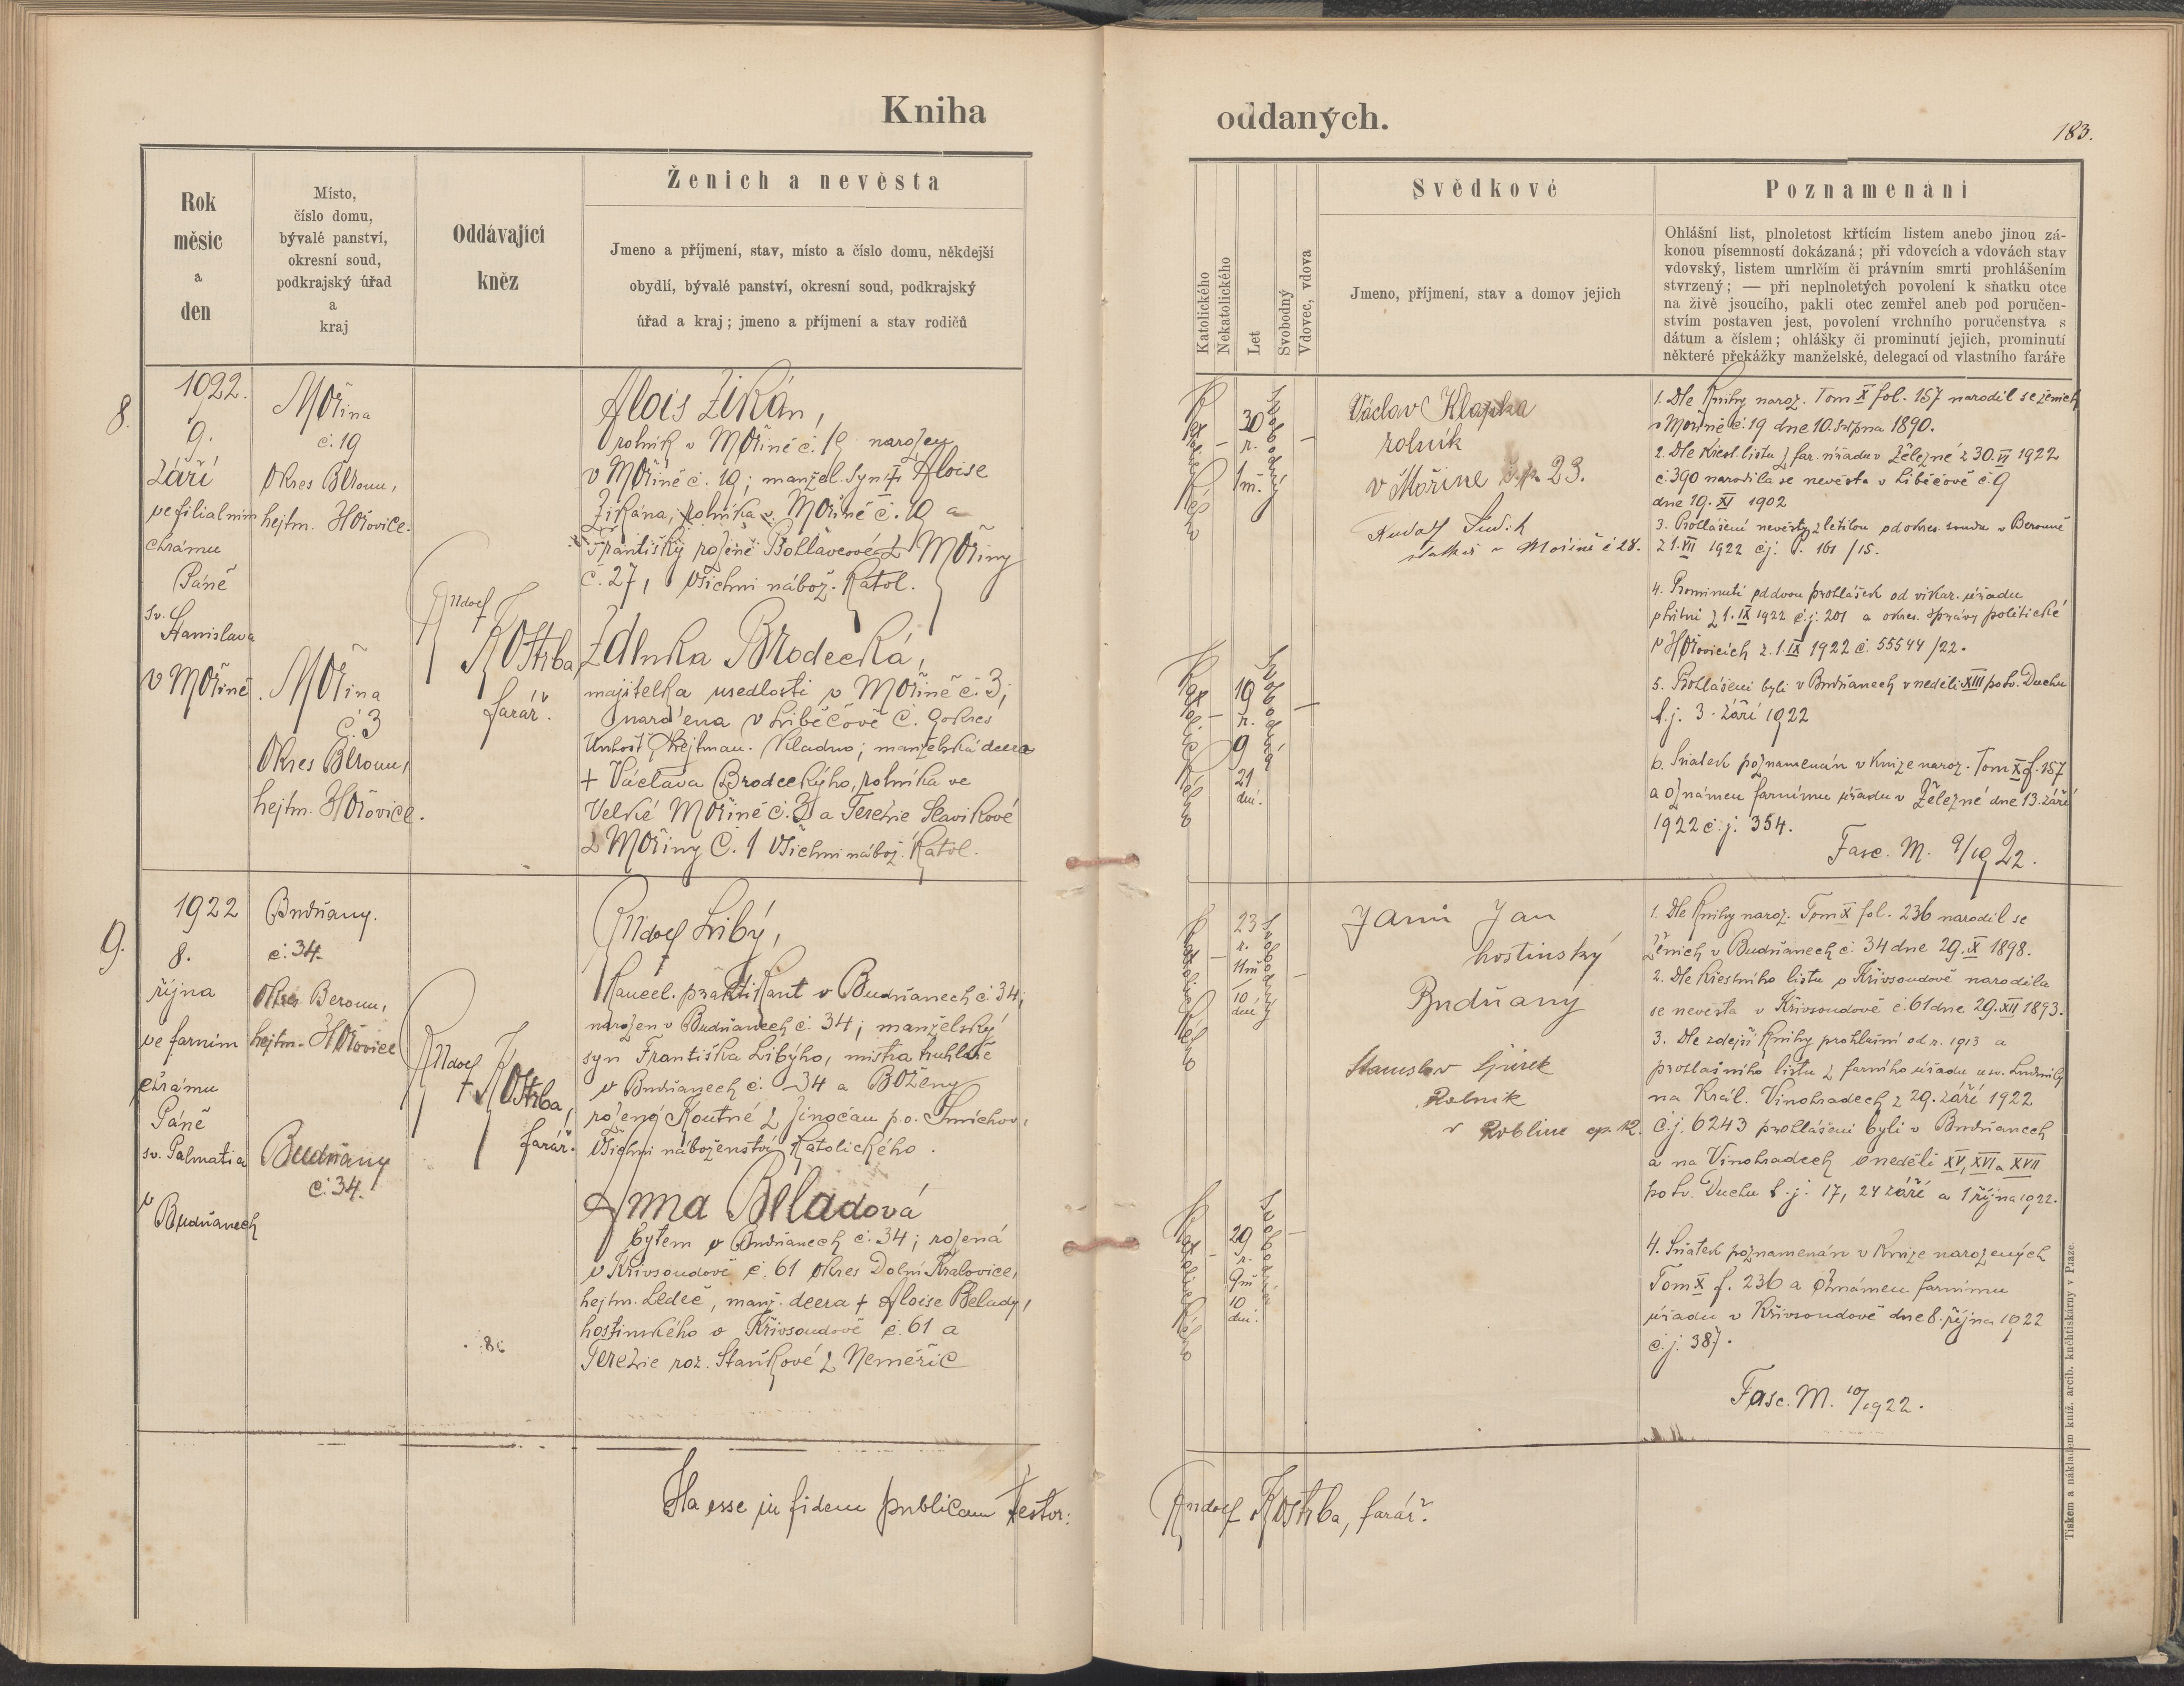 Kniha
oddaných.
183.
Rok
měsic
a
den
Místo,
číslo domu,
bývalé panství,
okresní soud,
podkrajský úřad
a
kraj
Oddávající
kněz
Ženich a nevěsta
Jmeno a příjmení, stav, místo a číslo domu, někdejší
obydlí, bývalé panství, okresní soud, podkrajský
úřad a kraj; jmeno a příjmení a stav rodičů
Katolického
Nekatolického
Let
Svobodný
Vdovec, vdova
Svědkové
Jmeno, příjmení, stav a domov jejich
Poznamenáni
Ohlášní list, plnoletost křtícím listem anebo jinou zá-
konou písemností dokázaná; při vdovcích a vdovách stav
vdovský, listem umrlčím či právním smrti prohlášením
stvrzený; — při neplnoletých povolení k sňatku otce
na živě jsoucího, pakli otec zemřel aneb pod poručen-
stvím postaven jest, povolení vrchního poručenstva s
dátum a číslem; ohlášky či prominutí jejich, prominutí
některé překážky manželské, delegací od vlastního faráře
8.
1922.
9.
září
ve filialním
chrámu
Páně
sv.
Stanislava
v Mořině
Mořina
č. 19
Okres Beroun,
hejtm. Hořovice.
Mořina
č. 3
Okres Beroun,
hejtm. Hořovice.
Rudolf
Kostrba,
farář.
Alois Zikán,
rolník v Mořině č. 19 narozen
v Mořině č. 19; manžel. syn † Aloise
Zikána, rolníka v Mořině č. 19 a
Františky rozené z Mořiny
č. 27, Všichni nábož. Katol.
Zdenka Brodecká,
majitelka usedlosti v Mořině č. 3,
narozena v Liběčově č. 9 okres
Unhošť hejtman. Kladno; manželská dcera
† Václava Brodeckýho, rolníka ve
Velké Mořině č. 3 a Terezie Slavíkové
z Mořiny č. 1 Všichni nábož. Katol.
Katolického
–
30
r.
1
m.
Svobodný
–
Katolického
–
19
r.
9
21
dní.
Svobodná
–
Václav Klapka
rolník
v Mořině č.p. 23.
Rudolf
v Mořině č 28.
1. Dle Knihy naroz. Tom X fol. 157 narodil se ženich
v Mořině č. 19 dne 10. srpna 1890.
2. Dle křest. listu z far. úřadu v Železné z 30. VI 1922
č. 390 narodila se nevěsta v Liběčově č. 9
dne 19. XI 1902
3. Prohlášení nevěsty zletilou od okres. soudu v Berouně
z 1. VII 1922 čj. P. 161/15.
4. Prominutí od dvou prohlášek od vikar. úřadu
z 1. IX 1922 č.j. 201 a okres. správy politické
v Hořovicích z. 1. IX 1922 č. 55544/22.
5. Prohlášeni byli v Budňanech v neděli XIII po sv. Duchu
t. j. 3. září 1922
6. Sňatek poznamenán v knize naroz. Tom X f. 157
a oznámen farnímu úřadu v Železné dne 13. září
1922 č. j. 354.
Fasc. M. 9/1922.
9.
1922
8.
října
ve farním
chrámu
Páně
sv. Palmatia
v
Budňanech
Budňany.
č. 34.
Okres Beroun,
hejtm. Hořovice
Budňany
č. 34.
Rudolf
Kostrba,
farář.
Rudolf Libý,
Kancel. praktikant v Budňanech č. 34;
narozen v Budňanech č. 34; manželský
syn Františka Libýho, mistra truhláře
v Budňanech č. 34 a Boženy
rozené Koutné z Jinočan p. o. Smíchov,
Všichni náboženství Katolického.
Anna Beladová
bytem v Budňanech č. 34; rozená
v Křivsoudově č. 61 okres Dolní Kralovice,
hejtm. Ledeč, manž. dcera † Aloise Belady,
hostinského v Křivsoudově č. 61 a
Terezie roz. Staňkové z Neměřic
Katolického
–
23
r.
11 m
10
dní
Svobodný
–
Katolického
–
29
r.
9 m
10
dní.
Svobodná
–
Janů Jan
hostinský
Budňany
Stanislav
Rolník
v Roblíne čp. 12.
1. Dle Knihy naroz. Tom X fol. 236 narodil se
ženich v Budňanech č. 34 dne 29. X 1898.
2. Dle křestního listu v Křivsoudově narodila
se nevěsta v Křivsoudově č. 61 dne 29. XII 1893.
3. Dle zdejší Knihy prohlášní od r. 1913 a
prohlašního listu z farního úřadu u sv. Ludmily
na Král. Vinohradech z 29. září 1922
č. j. 6243 prohlášeni byli v Budňanech
a na Vinohradech v neděli XV, XVI a XVII
po sv. Duchu t. j. 17, 24 září a 1 října 1922.
4. Sňatek poznamenán v Knize narozených
Tom X f. 236 a oznámen farnímu
úřadu v Křivsoudově dne 8. října 1922
č. j. 387.
Fasc. M. 10/1922.
Ita esse in fidem publicam testor:
Rudolf Kostrba, farář.
Tiskem a nákladem kníž. arcib. knihtiskárny v Praze.